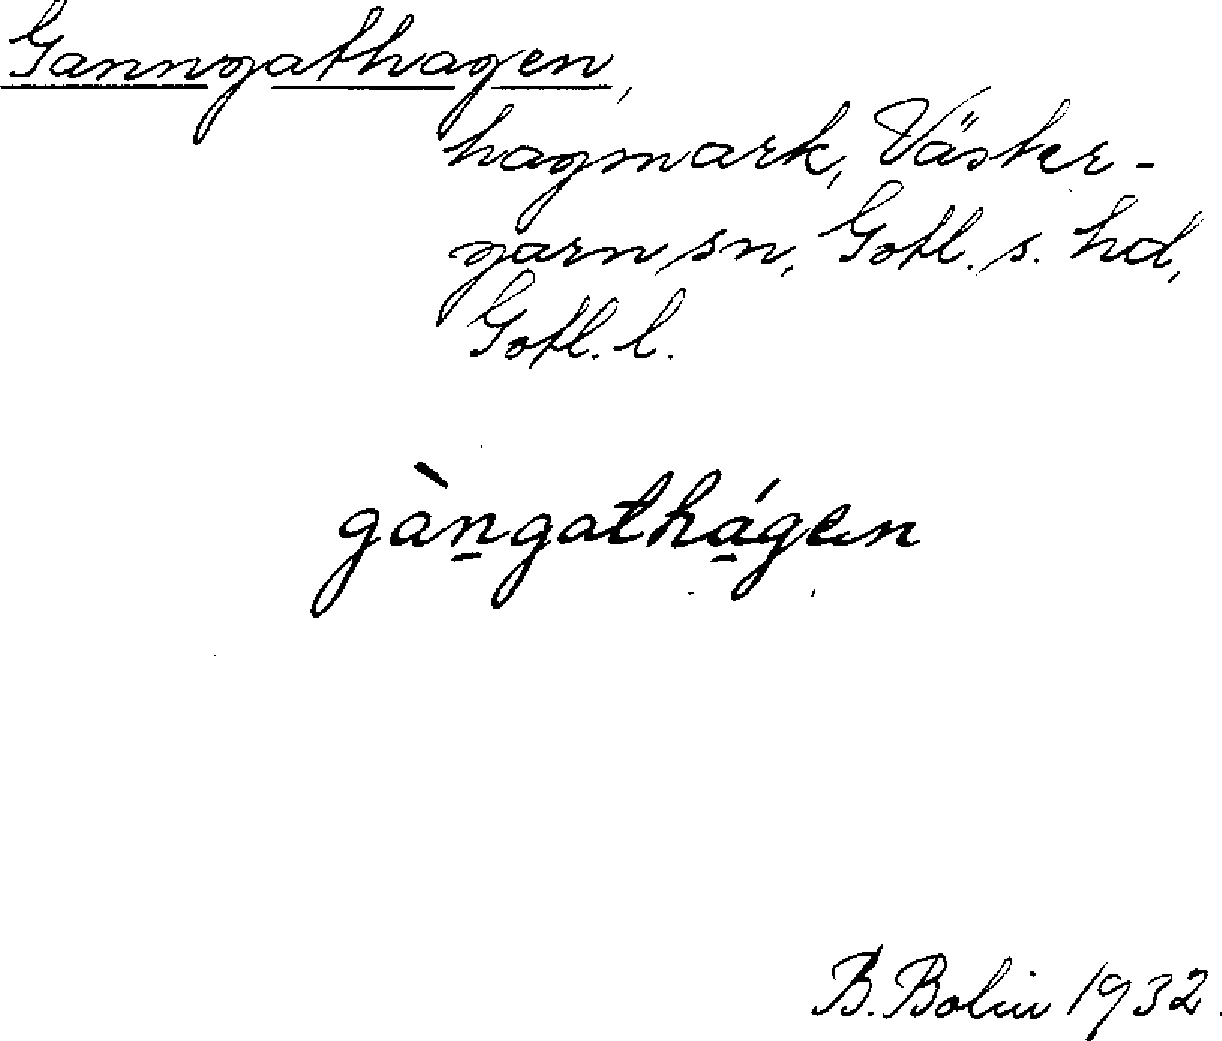 Ganngathagen,
hagmark, Väster-
garn sn, Gotl. s. hd,
Gotl. l.
gàn̲gathá̲gen
B. Bolin 1932.